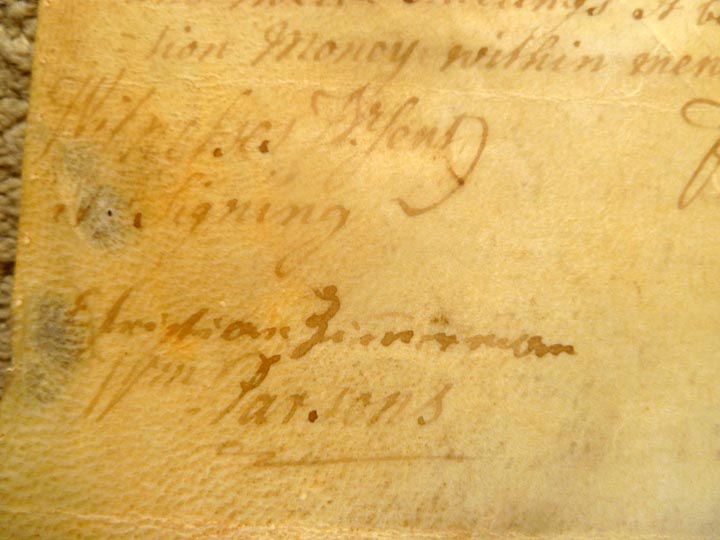 Shillings
tion Money within men
Witnesses Prsent
at Signing
Christian Zimmerman
Wm Parsons